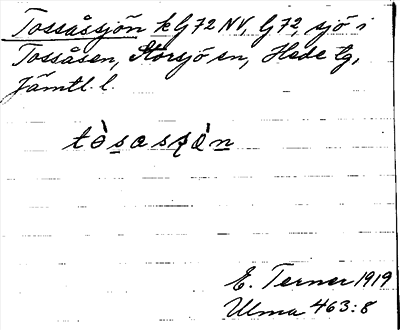 Tossåssjön k G 72 NV, G 72, sjö i
Tossåsen, Storsjö sn, Hede tg,
Jämtl. l.
E. Terner 1919
Ulma 463:8